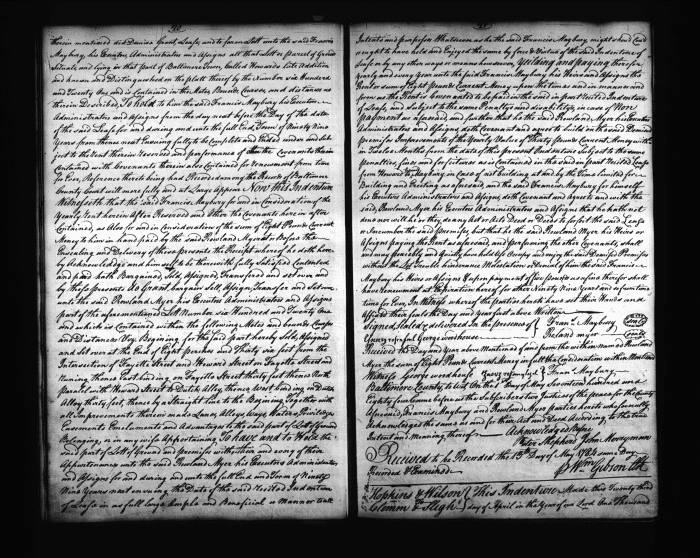 therein mentioned did Demise Grant, Lease, and to farm Lett unto the said Francis
Maybury, his Executors Administrators and Assigns all that Lott or Parcel of Ground
Situate and lying in that part of Baltimore Town, Called Howards late Addition
and known and Distinguished on the platt thereof by the Number six Hundred
and Twenty One and is Contained in the Metes Bounds Courses and distances as
therein Discribed, To hold to him the said Francis Maybury his Executors
Administrators and Assigns from the day next before the Day of the date
of the said Lease for and during and unto the full End, Term of Ninety Nine
Years from thence next Ensuing fully to be Complete and Ended under and sub
ject to the Rent therein Reserved and performance of the Covenants therein
Contained with Covenants therein also Contained for renewment from time
for Ever, Reference thereto being had Recorded among the Records of Baltimore
County Court will more fully and at Large Appear Now this Indenture
Witnesseth that the said Francis Maybury for and in Consideration of the
Yearly Rent herein After Reserved and Other the Covenants here in after
Contained, as Also for and in Consideration of the sum of Eight Pounds Current
Money to him in hand paid by the said Rowland Myer at or Before the
Ensealing and Delivery of these presents the Receipt whereof he doth here
by Acknowledge and himself to be therewith fully Satisfied Contented
and paid doth Bargained, Sold, Assigned, Transferred and set over and
by these presents do Grant bargain Sell, Assign, Transfer and Set over
unto the said Rowland Myer his Executors Administrators and Assigns
part of the aforementioned Lott Number six Hundred and Twenty One
and which is Contained within the following Metes and bounds Courses
and Distances Viz. Begining for the said part hereby Sold, Assigned
and set over at the End of Eight perches and Thirty six feet from the
Intersection of Fayette Street and Howard Street on Fayette Street and
running thence East binding on Fayette Street thirty feet thence North
Paralel with Howard Street to Dutch Alley, thence West binding on Dutch
Alley thirty feet, thence by a Straight line to the Begining Together with
all Improvements therein made Lanes, Alleys, Ways, Waters, Priviledges
Easements Emoluments and Advantages to the said part of Lott of Ground
Belonging, or in any wise Appertaining To have and to Hold the
said part of Lott of Ground and premises with them and every of their
Appurtenances unto the said Rowland Myer his Executors Administrators
and Assigns for and during and unto the full End and Term of Ninety
Nine Years next ensuing the Date of the said recited Indenture
of Lease in as full large Ample and Beneficial a Manner to all
Intents and purposes Whatsoever as he the said Francis Maybury might shoud Coud
or ought to have held and Enjoyed the same by force & Virtue of the said Indenture of
Lease or by any other ways or means howsoever, Yielding and paying therefor
yearly and every Year unto the said Francis Maybury his Heirs and Assigns the
Rent or sum of Eight Pounds Current Money, from the time and in manner and
form as the Rent is Covenanted to be paid in the said in part Recited Indenture
of Lease, and Subject to the same Penaltys and disability, in case of Non
payment as aforesaid, and further that he the said Rowland Myer his Executors
Administrators and Assigns doth Covenant and agree to build on the said Demised
premises Improvements of the Yearly Value of Thirty Pounds Current Money within
Months from the date of these present Indentures Subject to the same
Penalties, fines and forfeitures as is Contained in the said in part recited Lease
from Howard to Maybury, in Case of not building at and by the time limited for
Building and Erecting as aforesaid, and the said Francis Maybury for himself
his Executors Administrators and Assigns, doth Covenant and Agree to and with the
said, Rowland Myer his Executors Administrators and Assigns that he hath not
done nor will he or they do any Act or Acts Deed or Deeds to forfeit the said Lease
or Incumber the said premises, but that he the said Rowland Myer his Heirs or
Assigns paying the Rent as aforesaid, and performing the other Covenants, shall
and may peaceably and Quietly have hold Use Occupy and enjoy the said Demised Premises
without the Let Trouble hinderance Molestation or Denial of him the said Francis
Maybury his Heirs or Assigns
have Renewment at Expiration hereof for other Ninety Nine Years and so from time to
time for Ever, In Witness whereof the parties hereto have set their Hands and
Affixed their Seals the Day and Year first above Written
Signed Sealed & delivered In the presence of } Fran.s Maybury (Seal)
George woodhouse } Roland myer (Seal)
Received the Day and Year above Mentioned of and from the within named Rowland
Myer the sum of Eight Pounds Current Money in full the Consideration within Mentioned
Witness George woodhouse } Fran.s Maybury
Baltimore County, to Wit. On the day of May Seventeen hundred and
Eighty four came before us the Subscribers two Justices of the peace for County
Aforesaid, Francis Maybury and Rowland Myer parties hereto who severally
Acknowledged the same as and for their Act and Deed According to the true
Intent and Meaning thereof Acknowledged before
Peter Shepherd John Merryman
Received to be Recorded the 13th Day of May 1784 same Day
Recorded & Examined p Wm Gibson Clk
Hopkins & Wilson } This Indenture Made this Twenty third
Clemm & Sligh } day of April in the Year of our Lord One Thousand